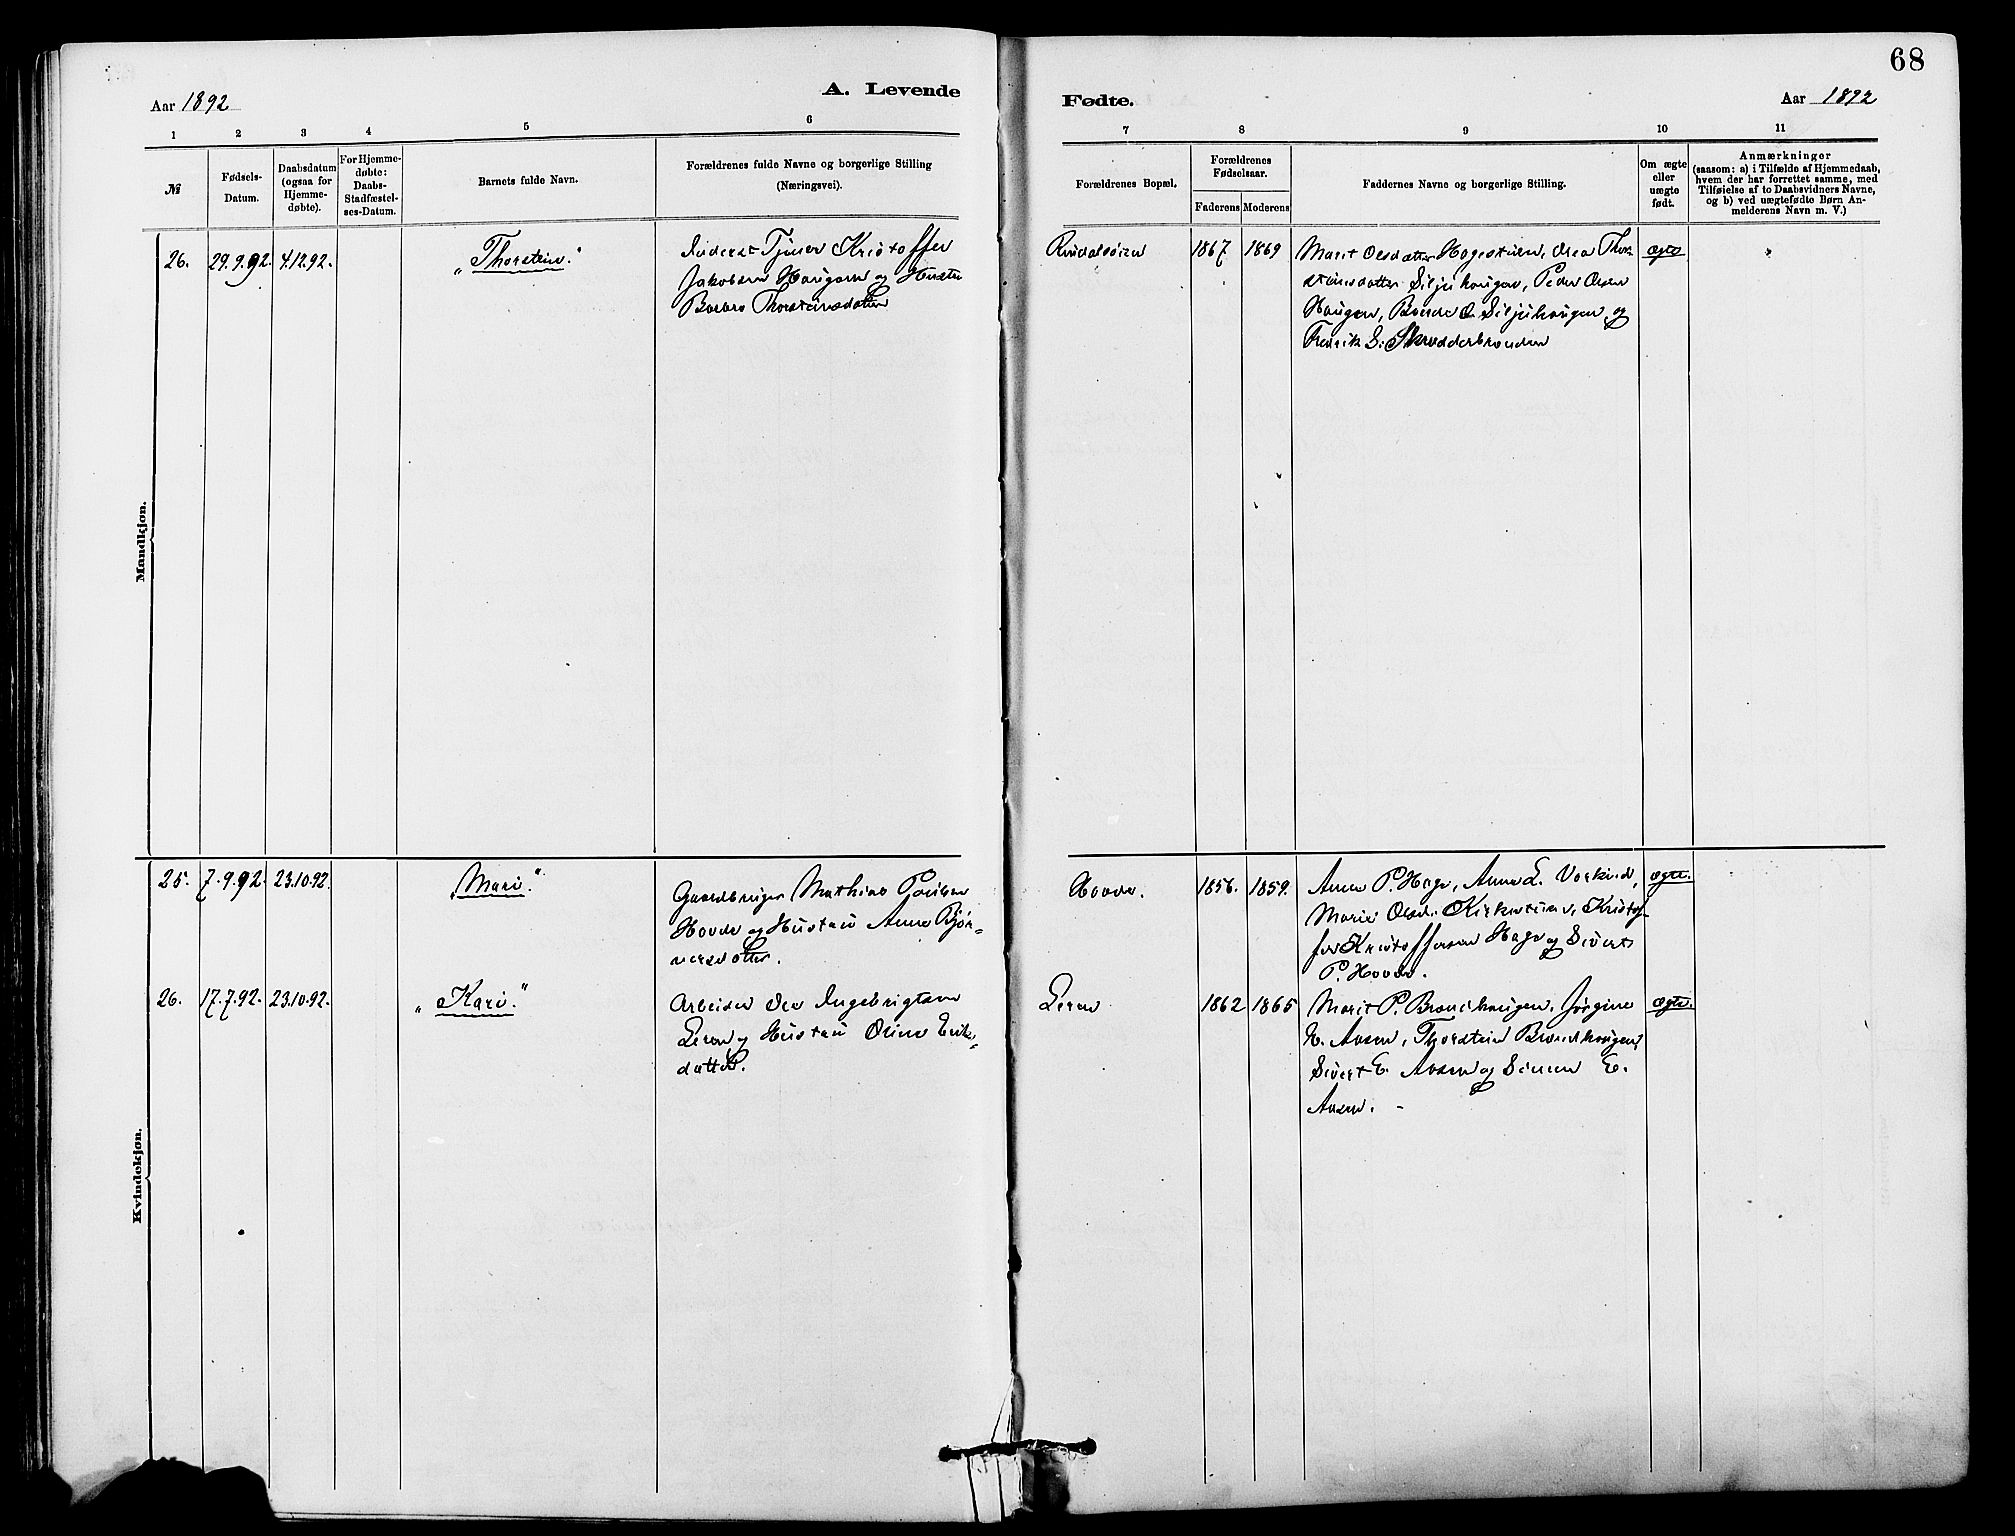 68
Aar 1892
A. Levende
Fødte.
Aar 1892
1 2 3 4 5 6 7 8 9 10 11
№
Fødsels-
Datum.
Daabsdatum
(ogsaa for
Hjemme-
døbte).
For Hjemme-
døbte:
Daabs-
Stadfæstel-
ses-Datum.
Barnets fulde Navn.
Forældrenes fulde Navne og borgerlige Stilling
(Næringsvei).
Forældrenes Bopæl.
Forældrenes
Fødselsaar.
Faderens Moderens
Faddernes Navne og borgerlige Stilling.
Om ægte
eller
uægte
født.
Anmærkninger
(saasom: a) i Tilfælde af Hjemmedaab,
hvem der har forrettet samme, med
Tilføielse af to Daabsvidners Navne,
og b) ved uægtefødte Børn An-
melderens Navn m. V.)
Mandkjøn.
26.
29.9.92.
4.12.92.
"Thorstein."
Inderst Tjener Kristoffer
Jakobsen Haugen og Hustru
Barbro Thorsteinsdatter
1867 1869
Marit Olsdatter Hagestuen, Thor-
steinsdatter Siljuhaugen, Peder Olsen
Haugen, O. Siljuhaugen og
Fredrik S.
ægte
Kvindekjøn.
25.
7.9.92.
23.10.92.
"Mari."
Gaardbruger Mathias Poulsen
Hovde og Hustru Anne Bjør-
nersdatter.
Hovde.
1856. 1859.
Anne P. Hage, Anne L. Vorkind,
Marie Olsd. Kirkestuen, Kristof-
fer Kristoffersen Hage og Sivert
P. Hovde.
ægte.
26.
17.7.92.
23.10.92.
"Kari."
Arbeider Ole Ingebrigtsen
Leren og Hustru Oline Eriks-
datter.
Leren
1862 1865
Marit P. Brandhaugen, Jørgine
E. Aasen, Thorstein Brandhaugen,
Sivert E. Aasen og Simen E.
Aasen. -
ægte.